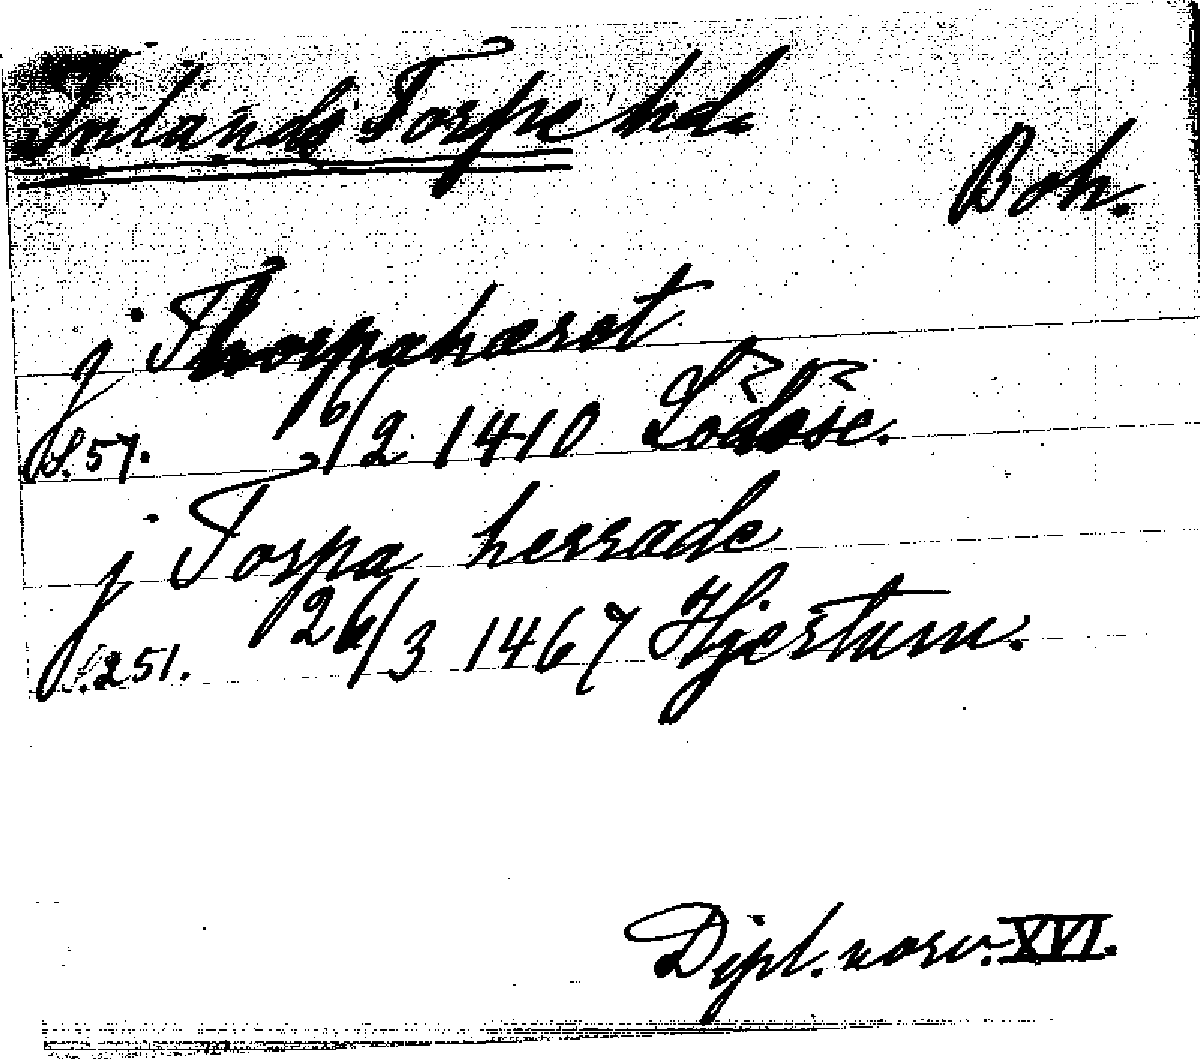 Inlands Torpe hd.
Boh.
j Thorpahæret
S. 57. 16/2 1410 Lödöse.
j Torpa herrade
S. 251. 26/3 1467 Hjertum.
Dipl. norv. XVI.